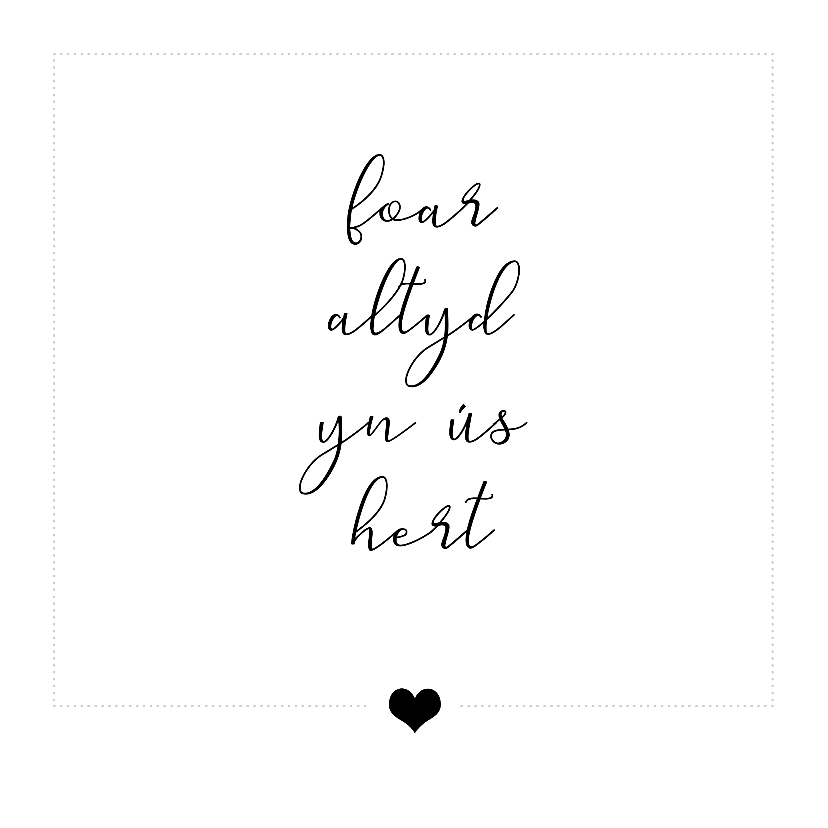 foar
altyd
yn ús
hert